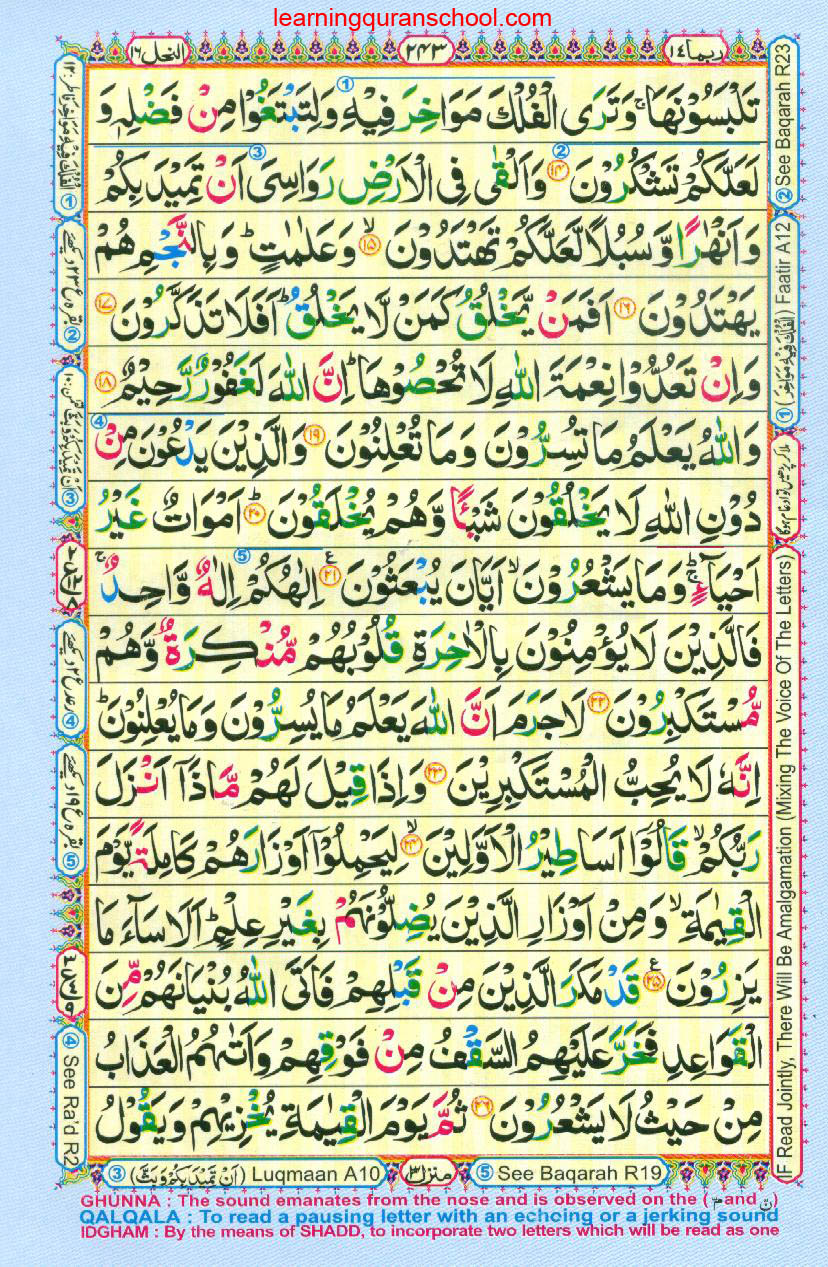 learningquranschool.com
ربما ١٤
٢٤٣
النحل ١٦
تَلْبَسُوْنَهَا ۚ وَتَرَى الْفُلْكَ مَوَاخِرَ فِيْهِ وَلِتَبْتَغُوْا مِنْ فَضْلِهٖ وَ
لَعَلَّكُمْ تَشْكُرُوْنَ ۞١٤ وَاَلْقٰى فِى الْاَرْضِ رَوَاسِىَ اَنْ تَمِيْدَ بِكُمْ
وَاَنْهٰرًا وَّسُبُلًا لَّعَلَّكُمْ تَهْتَدُوْنَ ۙ‏١٥ وَعَلٰمٰتٍ ؕ وَبِالنَّجْمِ هُمْ
يَهْتَدُوْنَ ١٦ اَفَمَنْ يَّخْلُقُ كَمَنْ لَّا يَخْلُقُ ؕ اَفَلَا تَذَكَّرُوْنَ ١٧
وَاِنْ تَعُدُّوْا نِعْمَةَ اللّٰهِ لَا تُحْصُوْهَا ؕ اِنَّ اللّٰهَ لَغَفُوْرٌ رَّحِيْمٌ ١٨
وَاللّٰهُ يَعْلَمُ مَا تُسِرُّوْنَ وَمَا تُعْلِنُوْنَ ١٩ وَالَّذِيْنَ يَدْعُوْنَ مِنْ
دُوْنِ اللّٰهِ لَا يَخْلُقُوْنَ شَيْـًٔا وَّهُمْ يُخْلَقُوْنَ ؕ ٢٠ اَمْوَاتٌ غَيْرُ
اَحْيَآءٍ ۚ وَمَا يَشْعُرُوْنَ ۙ اَيَّانَ يُبْعَثُوْنَ ٢١ اِلٰهُكُمْ اِلٰهٌ وَّاحِدٌ ۚ
فَالَّذِيْنَ لَا يُؤْمِنُوْنَ بِالْاٰخِرَةِ قُلُوْبُهُمْ مُّنْكِرَةٌ وَّهُمْ
مُّسْتَكْبِرُوْنَ ٢٢ لَا جَرَمَ اَنَّ اللّٰهَ يَعْلَمُ مَا يُسِرُّوْنَ وَمَا يُعْلِنُوْنَ ؕ
اِنَّهٗ لَا يُحِبُّ الْمُسْتَكْبِرِيْنَ ٢٣ وَاِذَا قِيْلَ لَهُمْ مَّاذَاۤ اَنْزَلَ
رَبُّكُمْ ۙ قَالُوْۤا اَسَاطِيْرُ الْاَوَّلِيْنَ ۙ ٢٤ لِيَحْمِلُوْۤا اَوْزَارَهُمْ كَامِلَةً يَّوْمَ
الْقِيٰمَةِ ۙ وَمِنْ اَوْزَارِ الَّذِيْنَ يُضِلُّوْنَهُمْ بِغَيْرِ عِلْمٍ ؕ اَلَا سَآءَ مَا
يَزِرُوْنَ ٢٥ قَدْ مَكَرَ الَّذِيْنَ مِنْ قَبْلِهِمْ فَاَتَى اللّٰهُ بُنْيَانَهُمْ مِّنَ
الْقَوَاعِدِ فَخَرَّ عَلَيْهِمُ السَّقْفُ مِنْ فَوْقِهِمْ وَاَتٰىهُمُ الْعَذَابُ
مِنْ حَيْثُ لَا يَشْعُرُوْنَ ٢٦ ثُمَّ يَوْمَ الْقِيٰمَةِ يُخْزِيْهِمْ وَيَقُوْلُ
② See Baqarah R23
① Faatir A12
IF Read Jointly, There Will Be Amalgamation (Mixing The Voice Of The Letters)
④ See Ra'd R2
③ (اَنْ تَمِيْدَ بِكُمْ وَبَثَّ) Luqmaan A10
منزل ٣
⑤ See Baqarah R19
GHUNNA : The sound emanates from the nose and is observed on the (مّ and نّ)
QALQALA : To read a pausing letter with an echoing or a jerking sound
IDGHAM : By the means of SHADD, to incorporate two letters which will be read as one